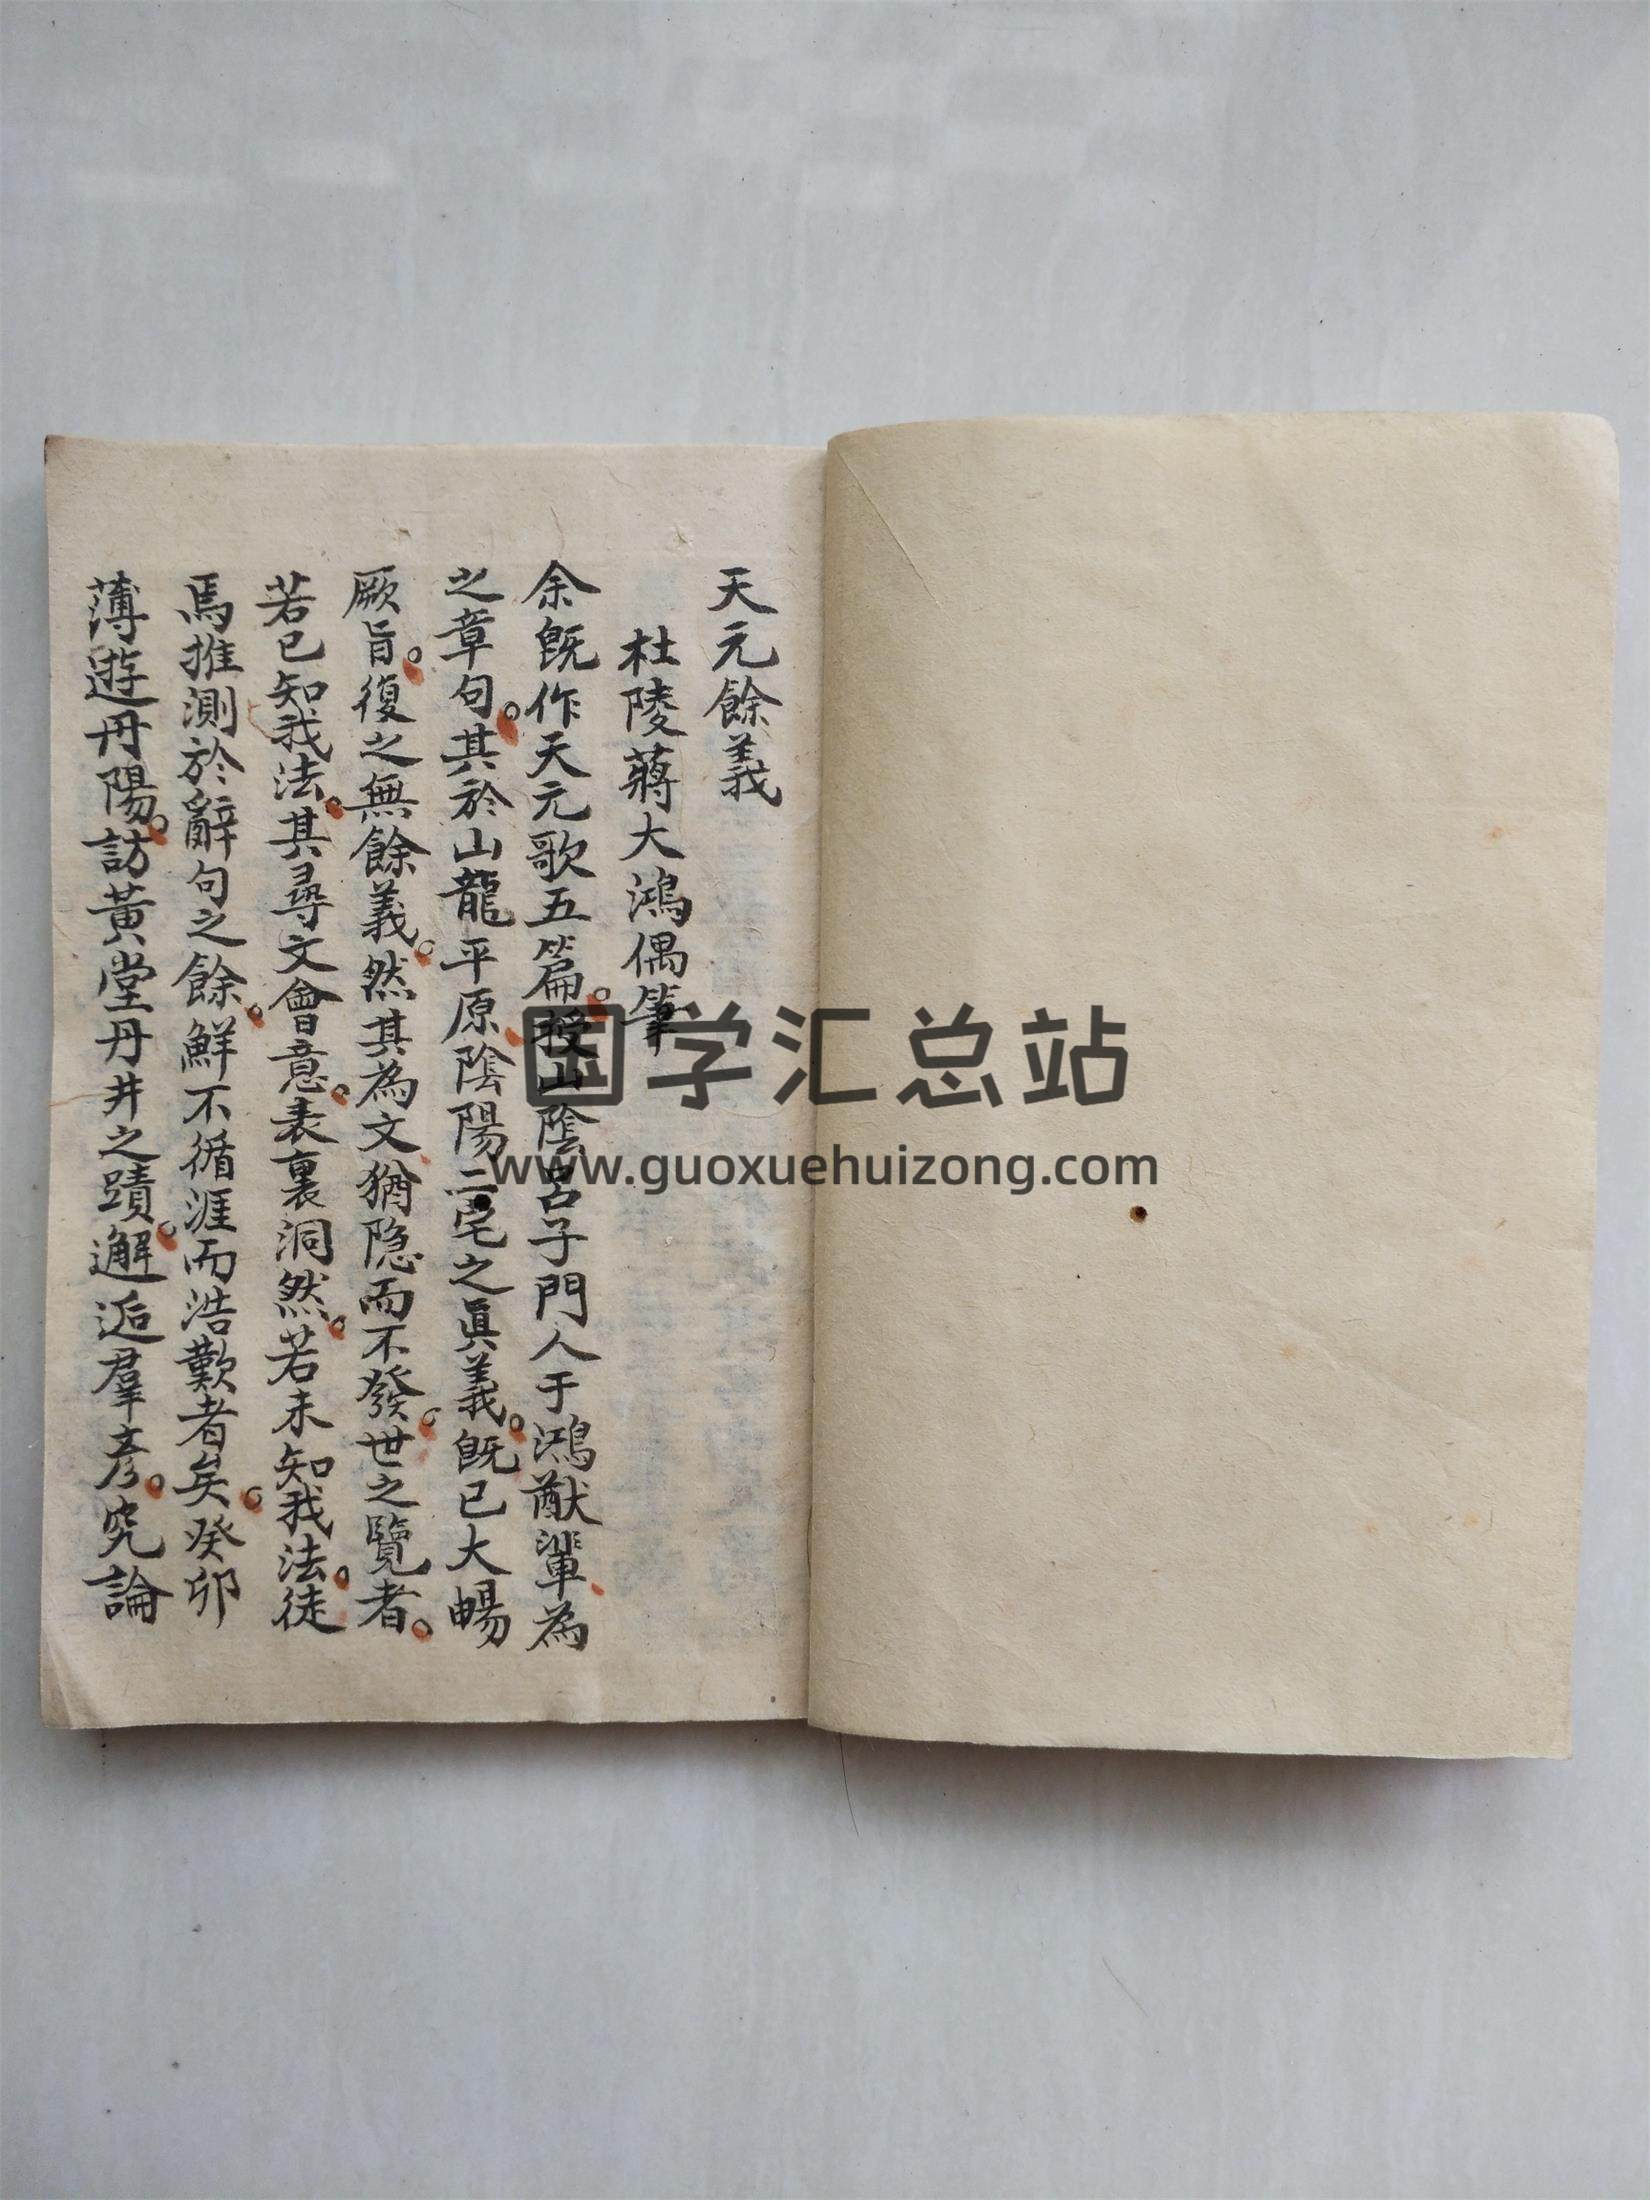 天元餘義
杜陵蔣大鴻偶筆
余旣作天元歌五篇。授山陰呂子門人于鴻猷輩為
之章句。其於山龍平原陰陽二宅之眞義。旣已大暢
厥旨。復之無餘義。然其為文猶隐而不發。世之覽者。
若已知我法。其尋文會意。表裏洞然。若未知我法。徒
焉推測於辭句之餘。鮮不循涯而浩歎者矣。癸卯
薄遊丹陽。訪黃堂丹井之蹟。邂逅羣彥。究論
国学汇总站
www.guoxuehuizong.com